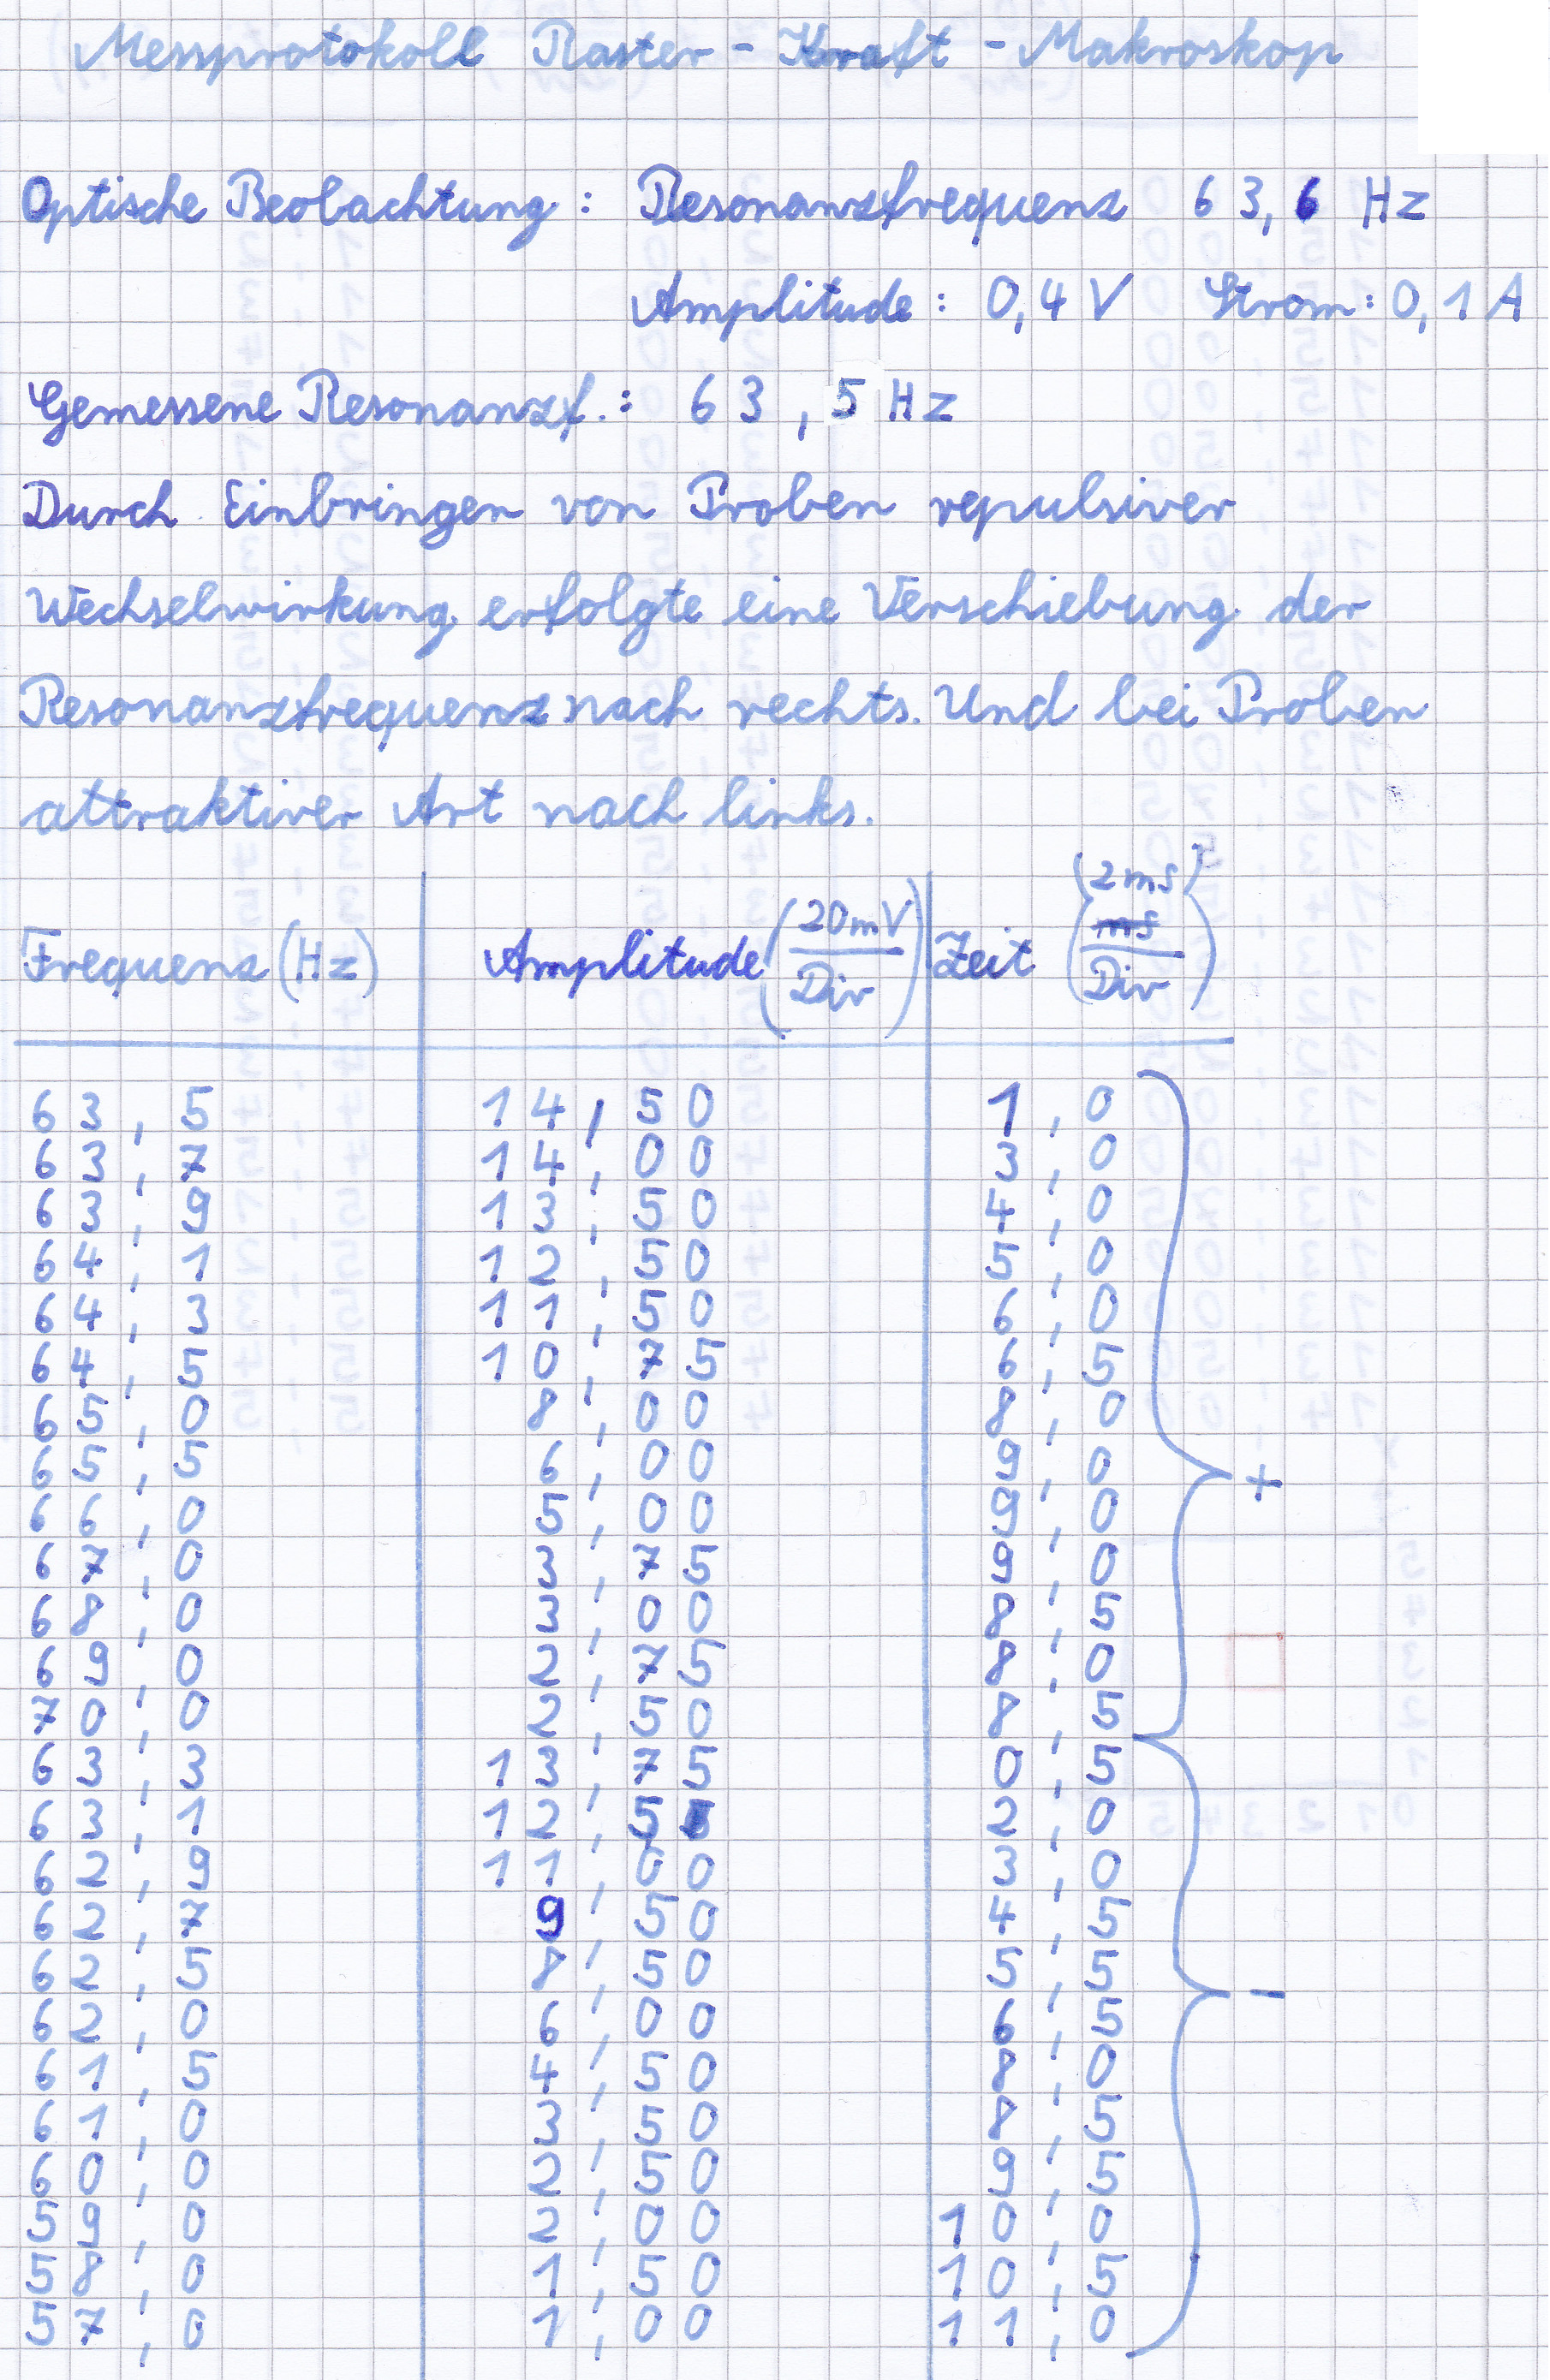 Messprotokoll Raster-Kraft-Makroskop
Optische Beobachtung: Resonanzfrequenz 63,6 Hz
Amplitude: 0,4 V Strom: 0,1 A
Gemessene Resonanzf.: 63,5 Hz
Durch Einbringen von Proben repulsiver
Wechselwirkung erfolgte eine Verschiebung der
Resonanzfrequenz nach rechts. Und bei Proben
attraktiver Art nach links.
Frequenz (Hz) Amplitude (20mV/Div) Zeit (2ms/Div)
63,5 14,50 1,0
63,7 14,00 3,0
63,9 13,50 4,0
64,1 12,50 5,0
64,3 11,50 6,0
64,5 10,75 6,5
65,0 8,00 8,0
65,5 6,00 9,0 +
66,0 5,00 9,0
67,0 3,75 9,0
68,0 3,00 8,5
69,0 2,75 8,0
70,0 2,50 8,5
63,3 13,75 0,5
63,1 12,5 2,0
62,9 11,00 3,0
62,7 9,50 4,5
62,5 8,50 5,5 -
62,0 6,00 6,5
61,5 4,50 8,0
61,0 3,50 8,5
60,0 2,50 9,5
59,0 2,00 10,0
58,0 1,50 10,5
57,0 1,00 11,0